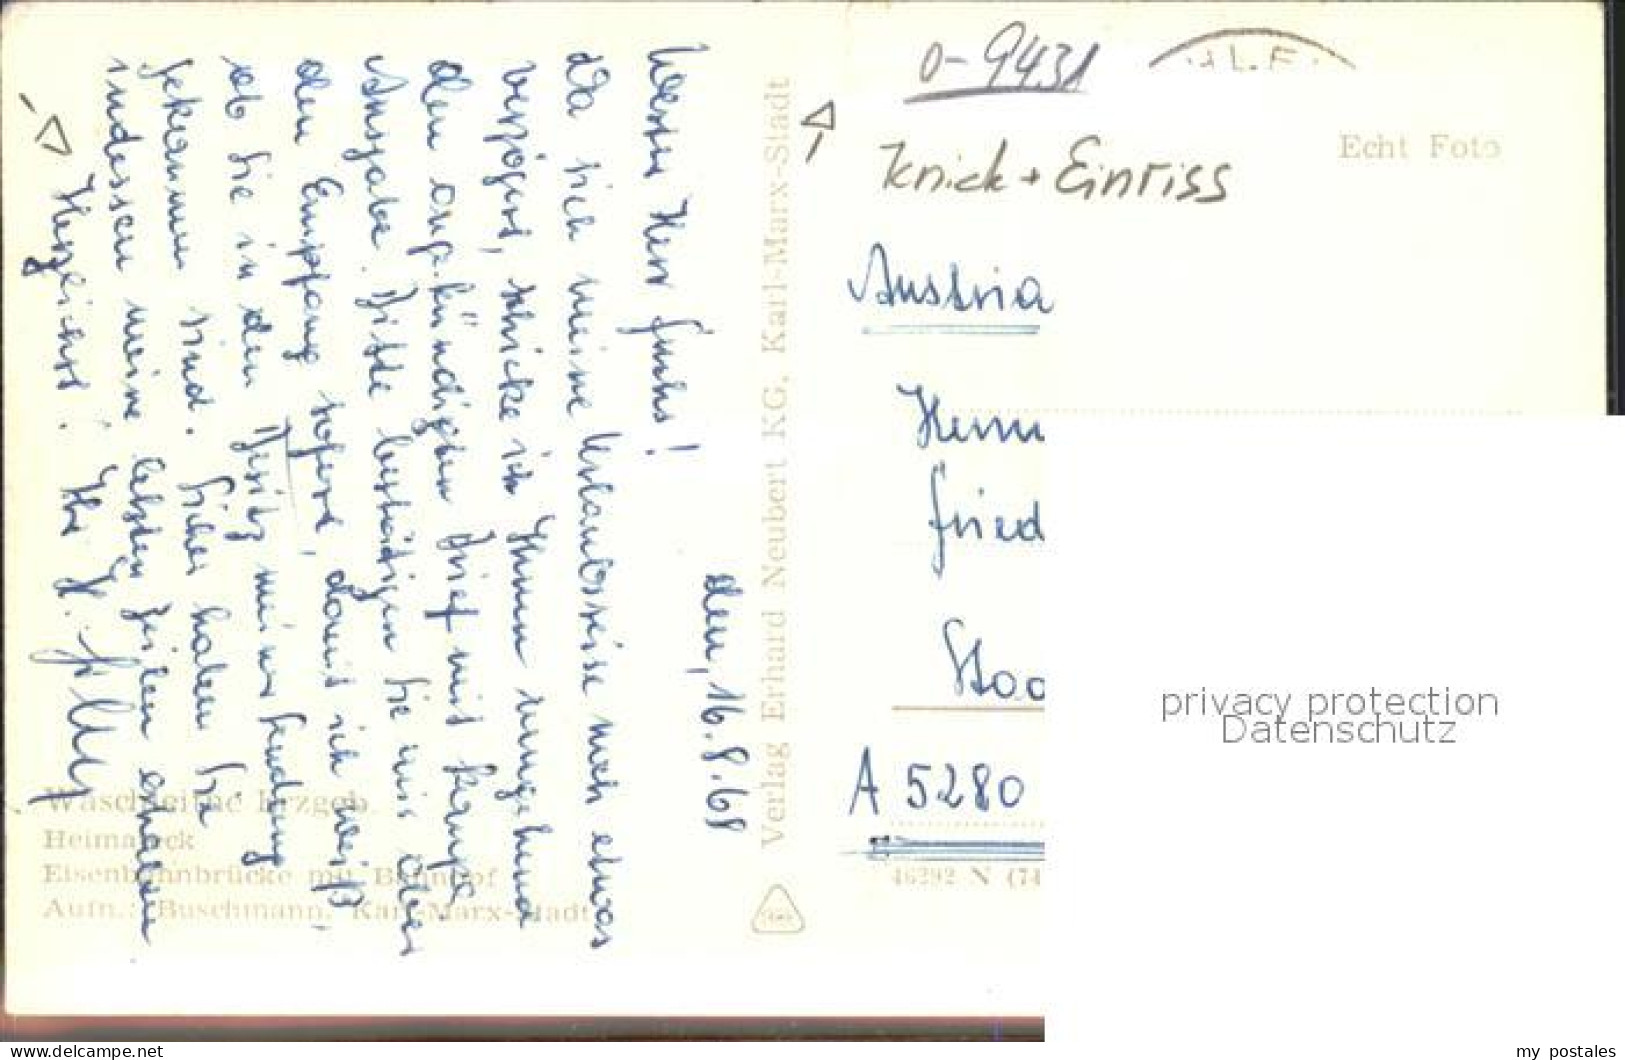 den, 16.8.68
Werter Herr Fuchs!
Da sich meine Urlaubsreise noch etwas
verzögert, schicke ich Ihnen umgehend
den angekündigten Brief mit
Ausgabe. Bitte bestätigen Sie mir aber
den Empfang sofort, damit ich weiß,
ob Sie in den Besitz meiner Sendung
gekommen sind. Sicher haben Sie
indessen meine letzten Zeilen erhalten
Herzlichst. Ihr H.
Waschleithe Erzgeb.
Heimateck
Eisenbahnbrücke mit Bahnhof
Aufn.: Buschmann, Karl-Marx-Stadt
Verlag Erhard Neubert KG, Karl-Marx-Stadt
0-9431
Knick + Einriss
Echt Foto
Austria
Herrn
Fried
Stoo
A 5280
46292 N (74
privacy protection
Datenschutz
www.delcampe.net
my_postales